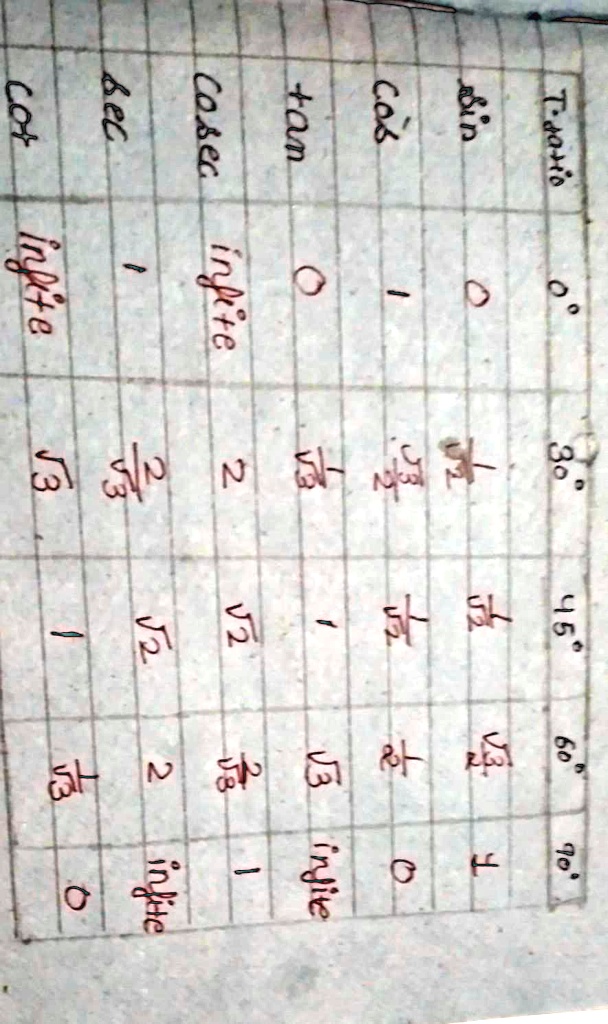 T.ratio 0° 30° 45° 60° 90°
sin 0 1/√2 1/√2 √3/2 1
cos 1 √3/2 1/√2 1/2 0
tan 0 1/√3 1 √3 infite
cosec infite 2 √2 2/√3 1
sec 1 2/√3 √2 2 infite
cot infite √3 1 1/√3 0